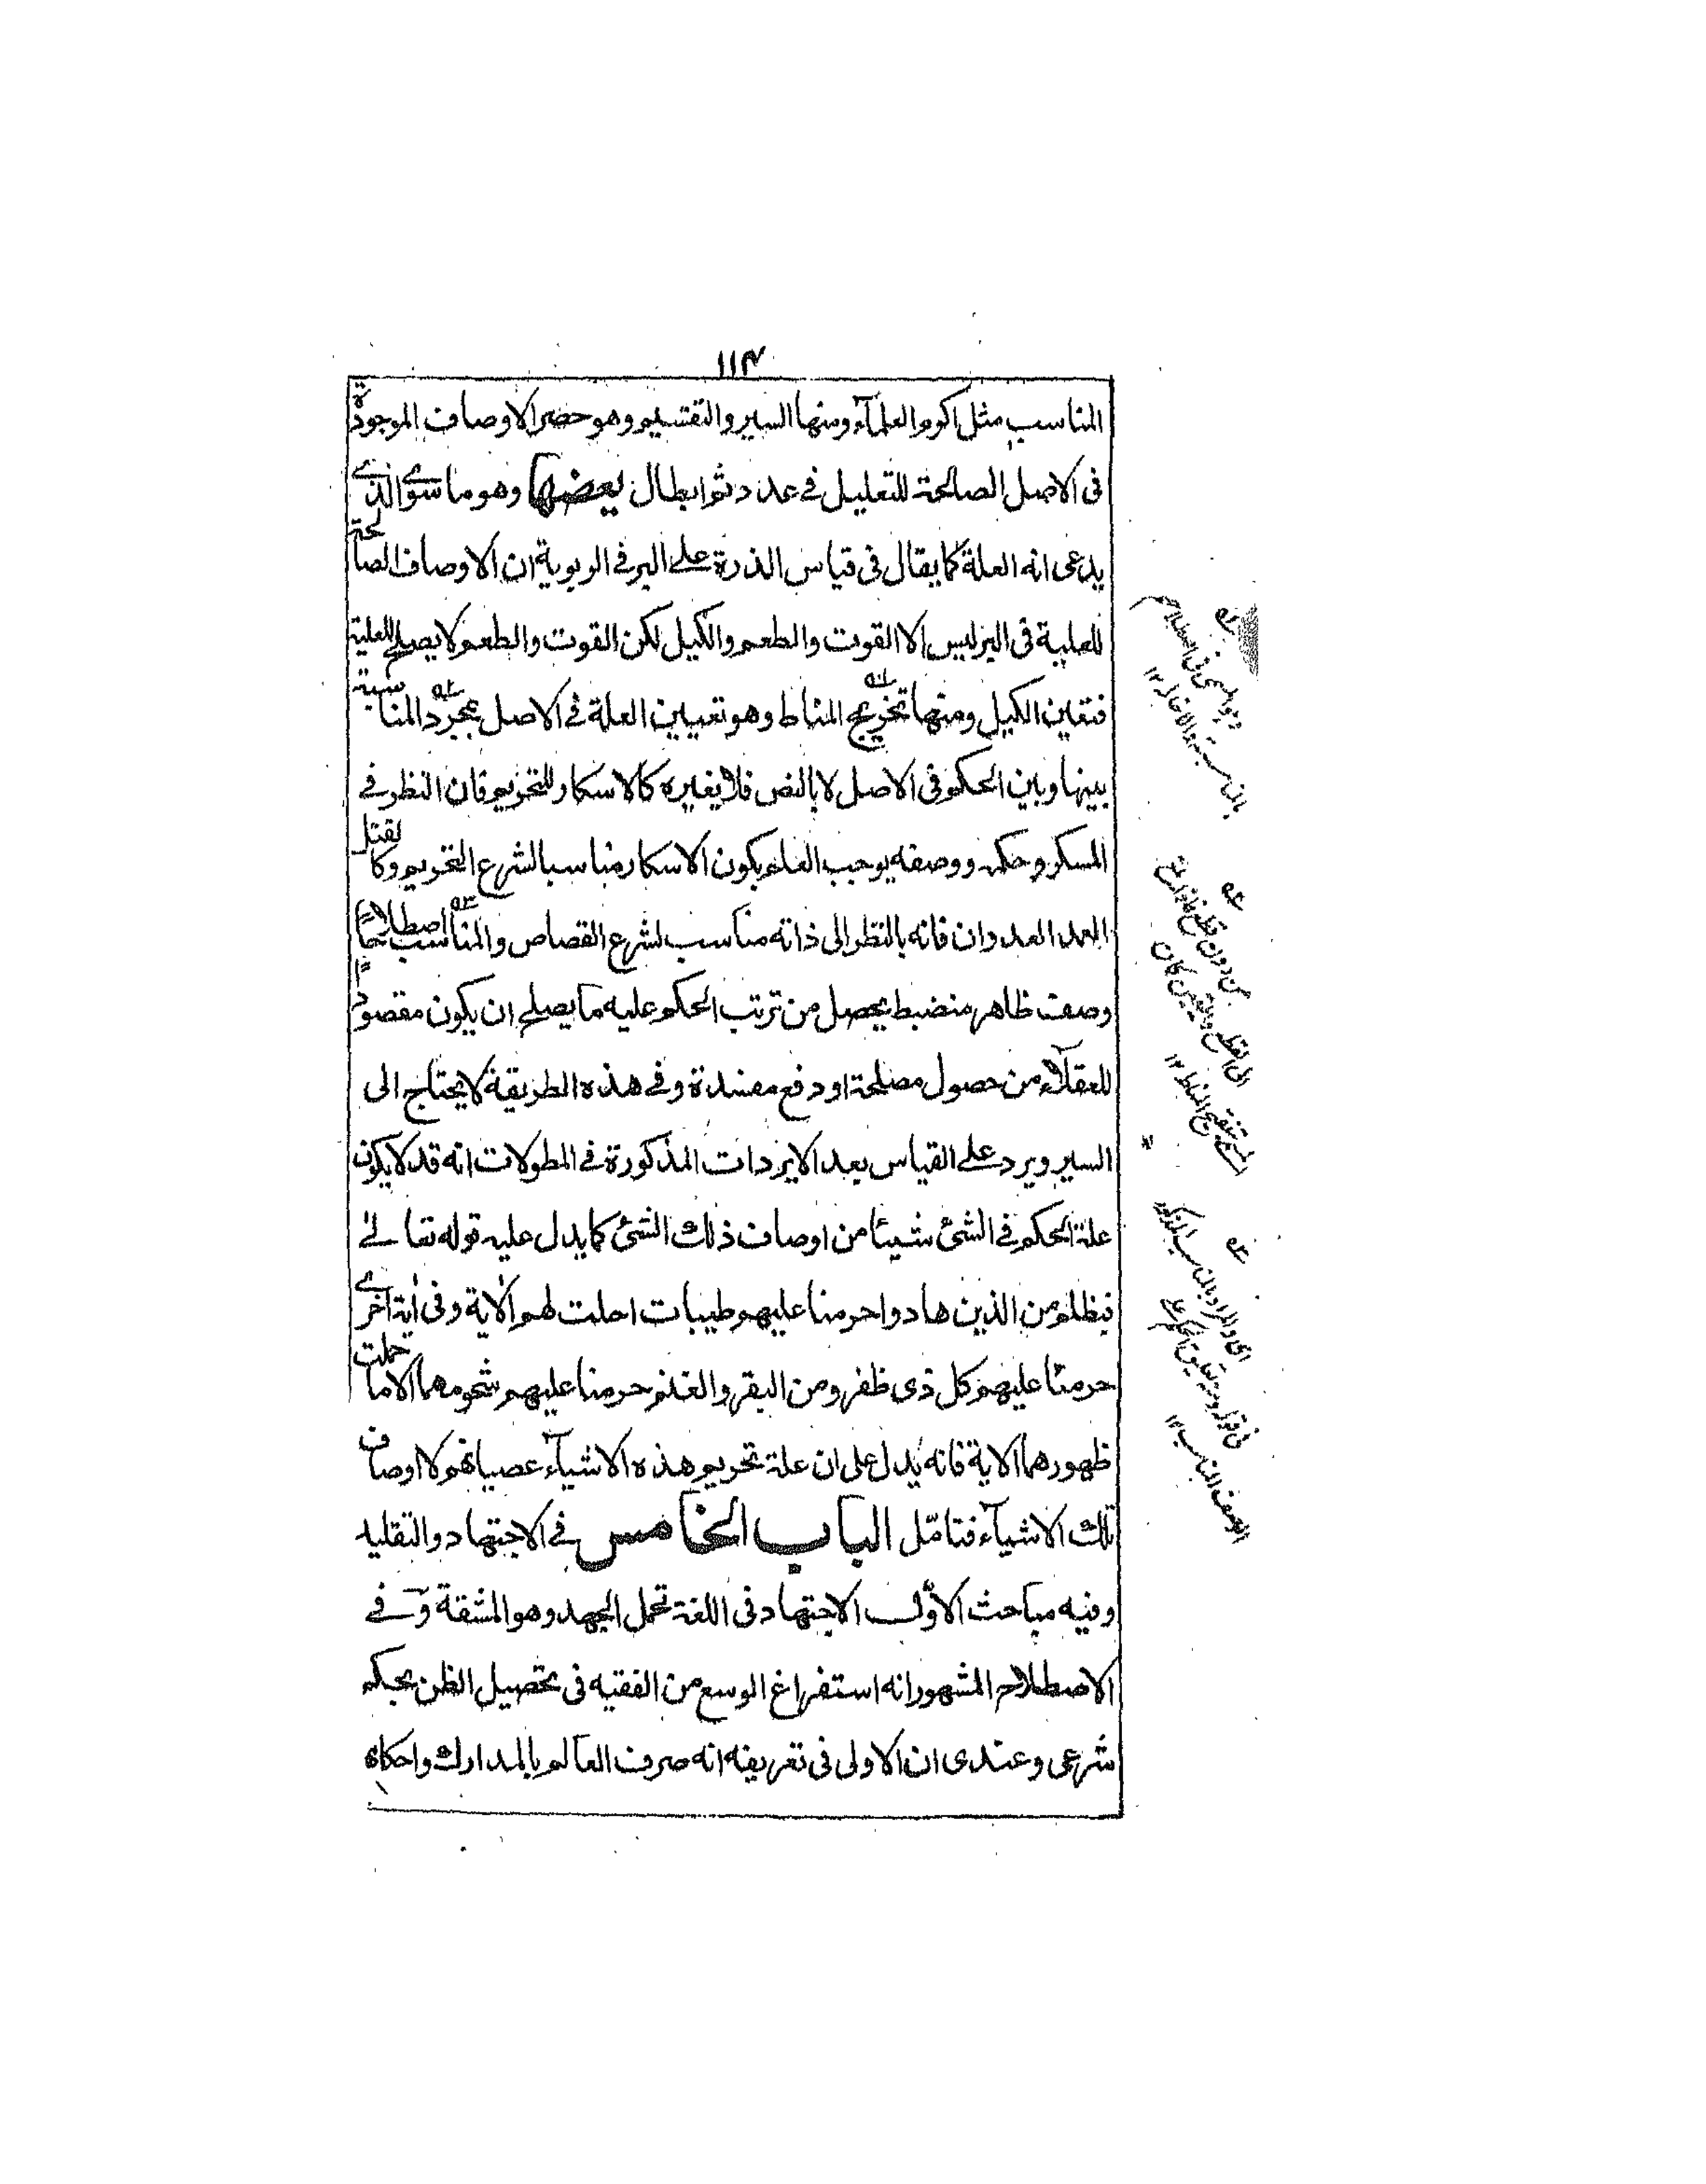 ١١٤
المناسب مثل اكرم العلمآء ومنها السبر والتقسيم وهو حصر الاوصاف الموجودة
فى الاصل الصالحة للتعليل فى عدد ثم ابطال بعضها وهو ما سوى الذى
يدعى انه العلة كما يقال فى قياس الذرة على البر فى الربوية ان الاوصاف الصالحة
للعلية فى البر ليس الا القوت والطعم والكيل لكن القوت والطعم لا يصلح للعلية
فتعين الكيل ومنها تخريج المناط وهو تعيين العلة فى الاصل بمجرد المناسبة
بينها وبين الحكم فى الاصل لا بالنص فلا بغيره كالاسكار للتحريم فان النظر فى
المسكر وحكمه ووصفه يوجب العلم بكون الاسكار مناسبا لشرع التحريم وكالقتل
العمد العدوان فانه بالنظر الى ذاته مناسب لشرع القصاص والمناسب اصطلاحًا
وصف ظاهر منضبط يحصل من ترتب الحكم عليه ما يصلح ان يكون مقصودًا
للعقلآء من حصول مصلحة او دفع مفسدة وفى هذه الطريقة لا يحتاج الى
السبر ويرد على القياس بعد الايردات المذكورة فى المطولات انه قد لا يكون
علة الحكم فى الشئ شيئا من اوصاف ذلك الشئ كما يدل عليه قوله تعالى
فبظلم من الذين هادوا حرمنا عليهم طيبات احلت لهم الاية وفى اية اخرى
حرمنا عليهم كل ذى ظفر ومن البقر والغنم حرمنا عليهم شحومهما الا ما حملت
ظهورهما الاية فانه يدل على ان علة تحريم هذه الاشيآء عصيانهم لا اوصاف
تلك الاشيآء فتامّل الباب الخامس فى الاجتهاد والتقليد
وفيه مباحث الاوّل الاجتهاد فى اللغة تحمل الجهد وهو المشقة وفى
الاصطلاح المشهور انه استفراغ الوسع من الفقيه فى تحصيل الظن بحكم
شرعى وعندى ان الاولى فى تعريفه انه صرف العالم بالمدارك واحكامها